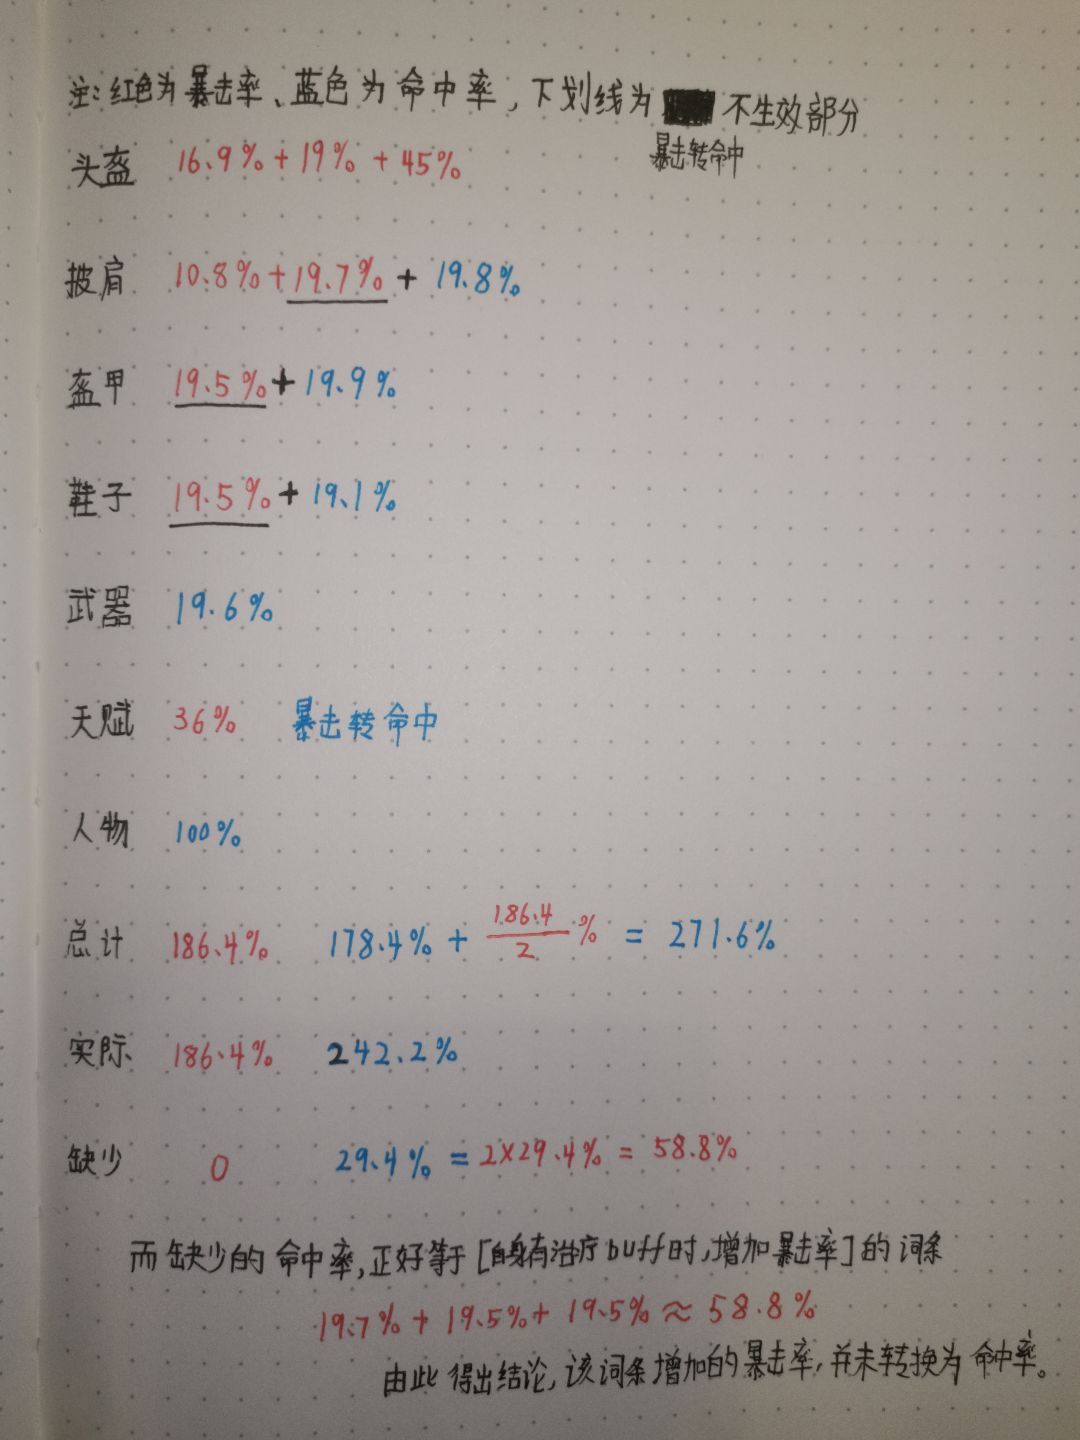 注：红色为暴击率、蓝色为命中率，下划线为 不生效部分
暴击转命中
头盔 16.9% + 19% + 45%
披肩 10.8% + 19.7% + 19.8%
盔甲 19.5% + 19.9%
鞋子 19.5% + 19.1%
武器 19.6%
天赋 36% 暴击转命中
人物 100%
总计 186.4% 178.4% + 186.4/2 % = 271.6%
实际 186.4% 242.2%
缺少 0 29.4% = 2×29.4% = 58.8%
而缺少的命中率，正好等于[自身有治疗buff时，增加暴击率]的词条
19.7% + 19.5% + 19.5% ≈ 58.8%
由此得出结论，该词条增加的暴击率，并未转换为命中率。